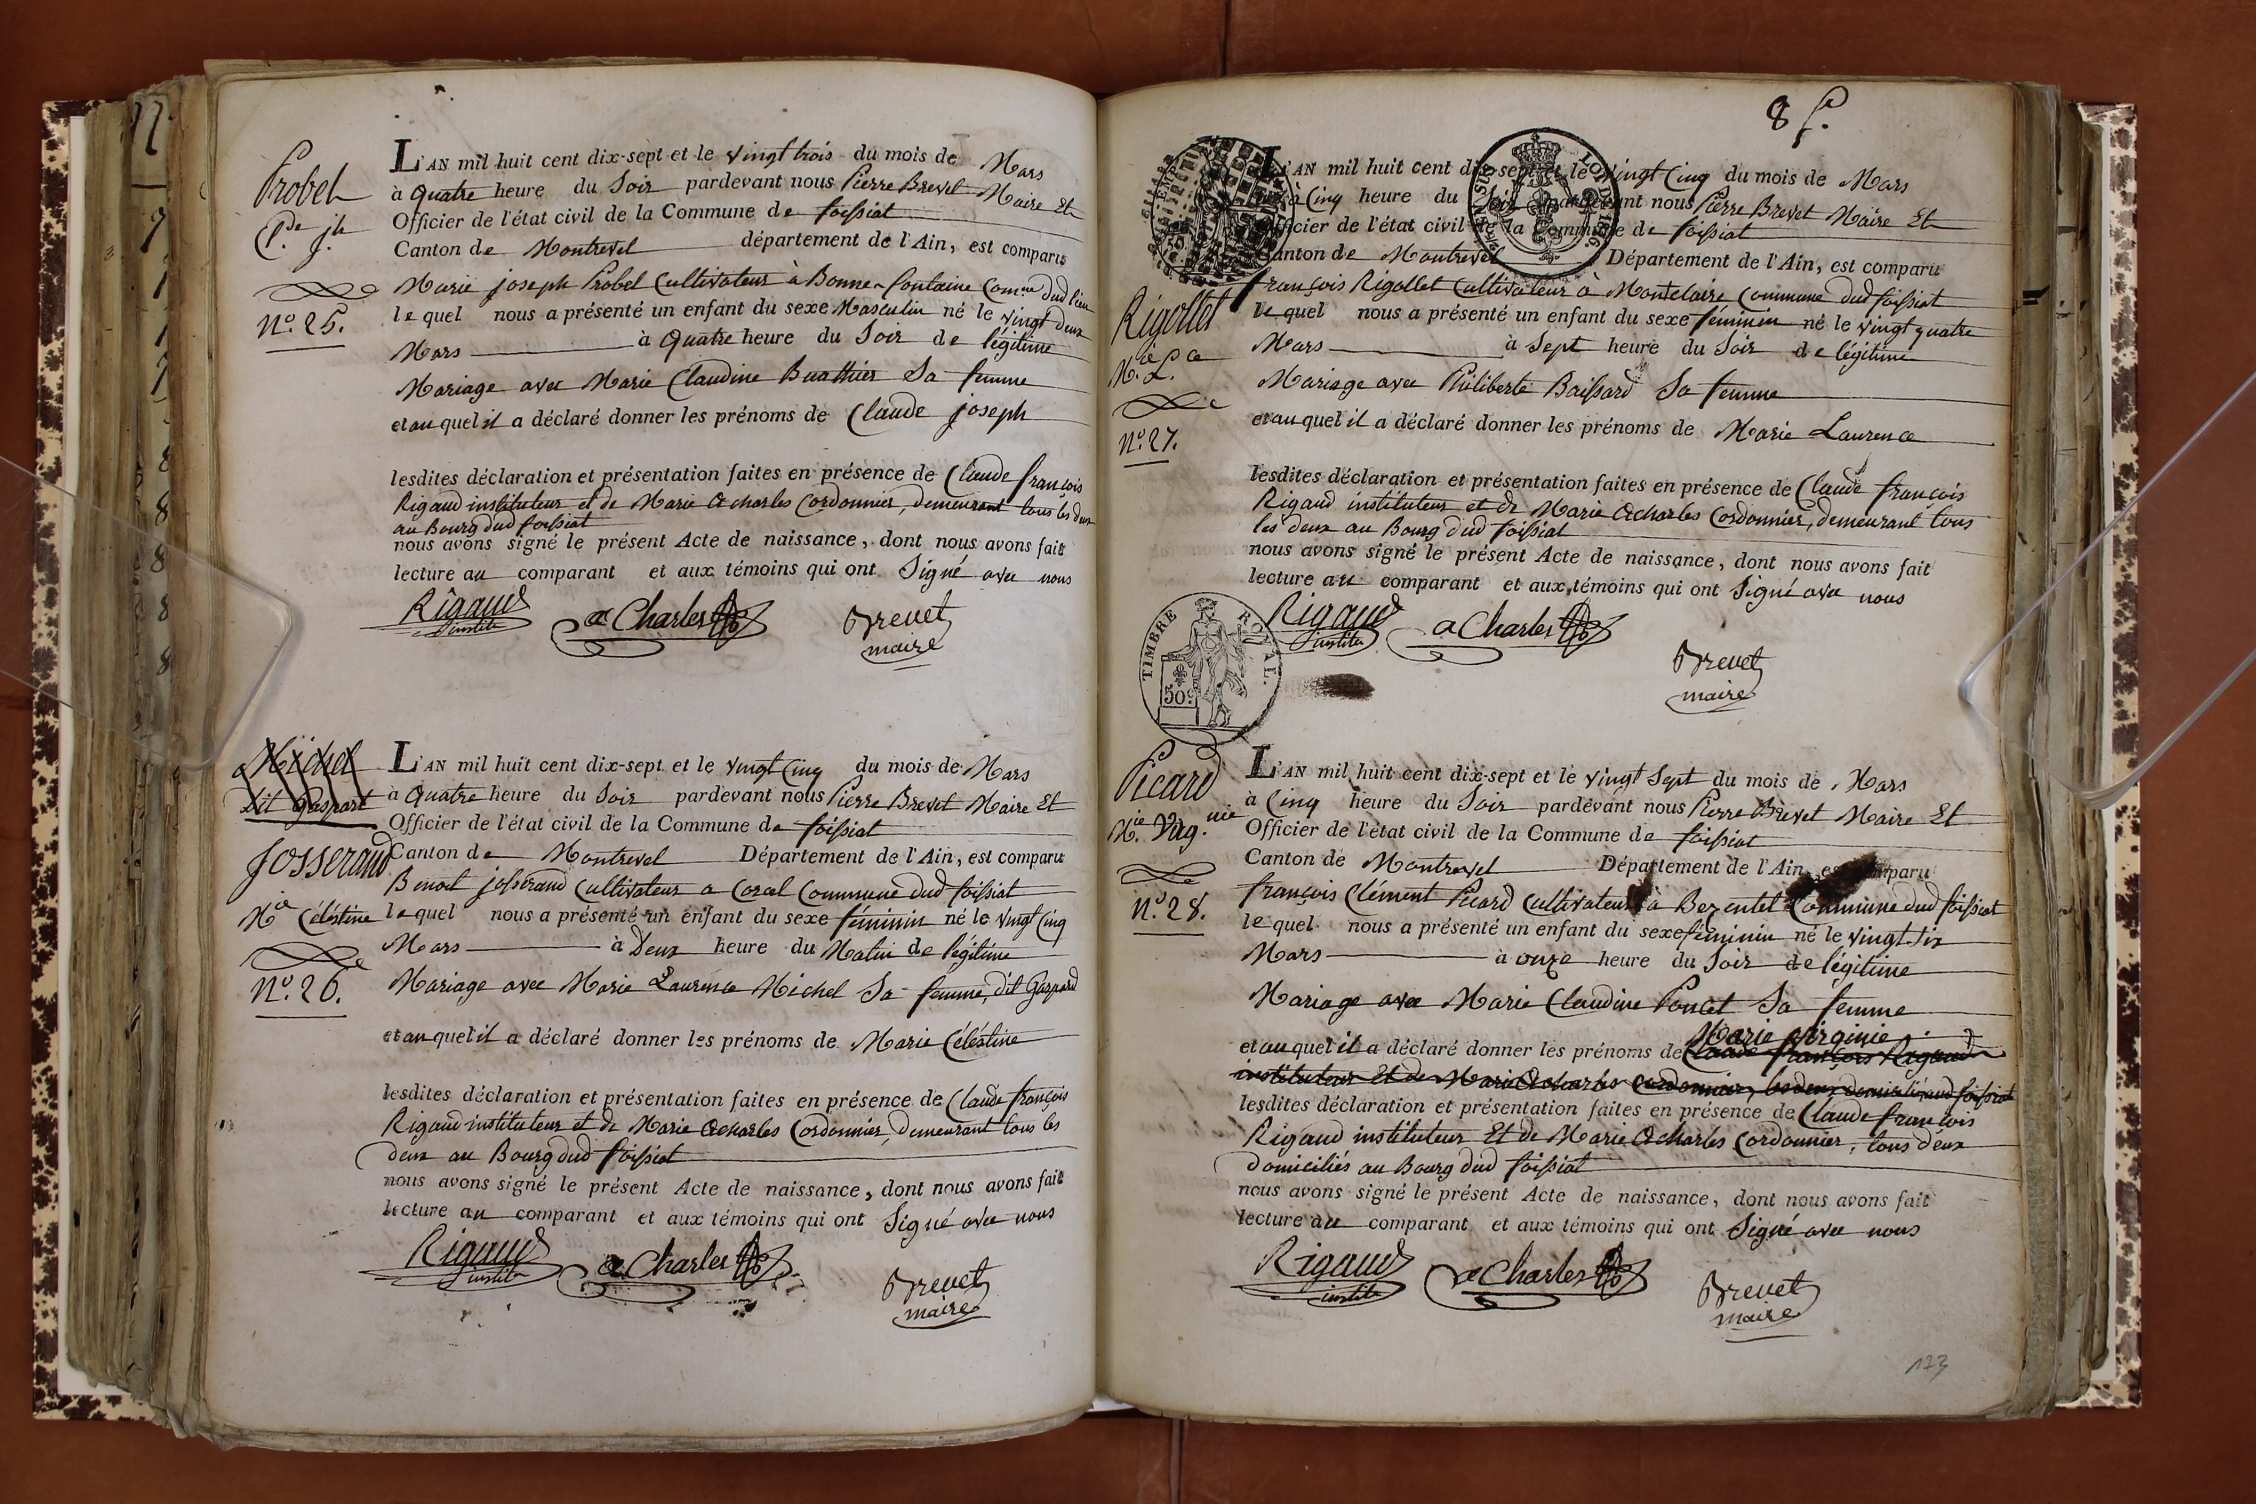 Probel
C.de jh
N.o 25.
L'AN mil huit cent dix-sept et le vingt trois du mois de Mars
à Quatre heure du Soir pardevant nous Pierre Brevet Maire Et
Officier de l'état civil de la Commune de foissiat
Canton de Montrevel département de l'Ain, est comparu
Marie joseph Probel Cultivateur à Bonne-fontaine Com.ne dud lieu
lequel nous a présenté un enfant du sexe Masculin né le vingt deux
Mars à Quatre heure du Soir de légitime
Mariage avec Marie Claudine Buathier Sa femme
et auquel il a déclaré donner les prénoms de Claude joseph
lesdites déclaration et présentation faites en présence de Claude françois
Rigaud instituteur et de Marie Acharles Cordonnier, demeurant tous les deux
au Bourg dud foissiat
nous avons signé le présent Acte de naissance, dont nous avons fait
lecture au comparant et aux témoins qui ont Signé avec nous
Rigaud
institr
aCharles
Brevet
maire
Michel
dit Gaspart
Josserand
M.ie Céléstine
N.o 26.
L'AN mil huit cent dix-sept et le vingt Cinq du mois de Mars
à Quatre heure du Soir pardevant nous Pierre Brevet Maire Et
Officier de l'état civil de la Commune de foissiat
Canton de Montrevel Département de l'Ain, est comparu
Benoit josserand Cultivateur a Corcel Commune dud foissiat
lequel nous a présenté un enfant du sexe féminin né le vingt Cinq
Mars à Deux heure du Matin de légitime
Mariage avec Marie Laurence Michel Sa femme, dit Gaspard
et auquel il a déclaré donner les prénoms de Marie Céléstine
lesdites déclaration et présentation faites en présence de Claude françois
Rigaud instituteur et de Marie Acharles Cordonnier, demeurant tous les
deux au Bourg dud foissiat
nous avons signé le présent Acte de naissance, dont nous avons fait
lecture au comparant et aux témoins qui ont Signé avec nous
Rigaud
institr
aCharles
Brevet
maire
8 f.
Rigollet
M.ie L.ce
N.o 27.
L'AN mil huit cent dix-sept et le vingt Cinq du mois de Mars
à Cinq heure du Soir pardevant nous Pierre Brevet Maire Et
Officier de l'état civil de la Commune de foissiat
Canton de Montrevel Département de l'Ain, est comparu
françois Rigollet Cultivateur à Montclaire Commune dud foissiat
lequel nous a présenté un enfant du sexe féminin né le vingt quatre
Mars à Sept heure du Soir de légitime
Mariage avec Philiberte Baissard Sa femme
et auquel il a déclaré donner les prénoms de Marie Laurence
lesdites déclaration et présentation faites en présence de Claude françois
Rigaud instituteur et de Marie Acharles Cordonnier, demeurant tous
les deux au Bourg dud foissiat
nous avons signé le présent Acte de naissance, dont nous avons fait
lecture au comparant et aux témoins qui ont Signé avec nous
TIMBRE ROYAL.
50c
Rigaud
institr
aCharles
Brevet
maire
Picard
M.ie Virg.nie
N.o 28.
L'AN mil huit cent dix-sept et le vingt Sept du mois de Mars
à Cinq heure du Soir pardevant nous Pierre Brevet Maire Et
Officier de l'état civil de la Commune de foissiat
Canton de Montrevel Département de l'Ain, est comparu
françois Clément Picard Cultivateur à Bezentet Commune dud foissiat
lequel nous a présenté un enfant du sexe féminin né le vingt Six
Mars à onze heure du Soir de légitime
Mariage avec Marie Claudine Poncet Sa femme
Marie virginie
et auquel il a déclaré donner les prénoms de Claude françois Rigaud
instituteur Et de Marie Acharles Cordonnier, les deux domiciliés aud foissiat
lesdites déclaration et présentation faites en présence de Claude françois
Rigaud instituteur Et de Marie Acharles Cordonnier, tous deux
domiciliés au Bourg dud foissiat
nous avons signé le présent Acte de naissance, dont nous avons fait
lecture au comparant et aux témoins qui ont Signé avec nous
Rigaud
institr
aCharles
Brevet
maire
173